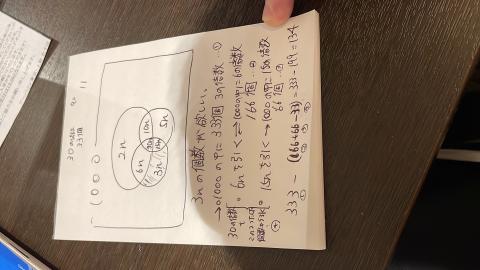 ~1000
30の倍数
33個
2n
10n
5n
6n
30n
15n
3n
3nの個数が欲しい。
→1000の中に333個 3の倍数…①
6nを引く⇔1000の中に6の倍数
166個…②
15nを引く→1000の中に15の倍数
66個…③
30の倍数
333-(166+66-33)=333-199=134